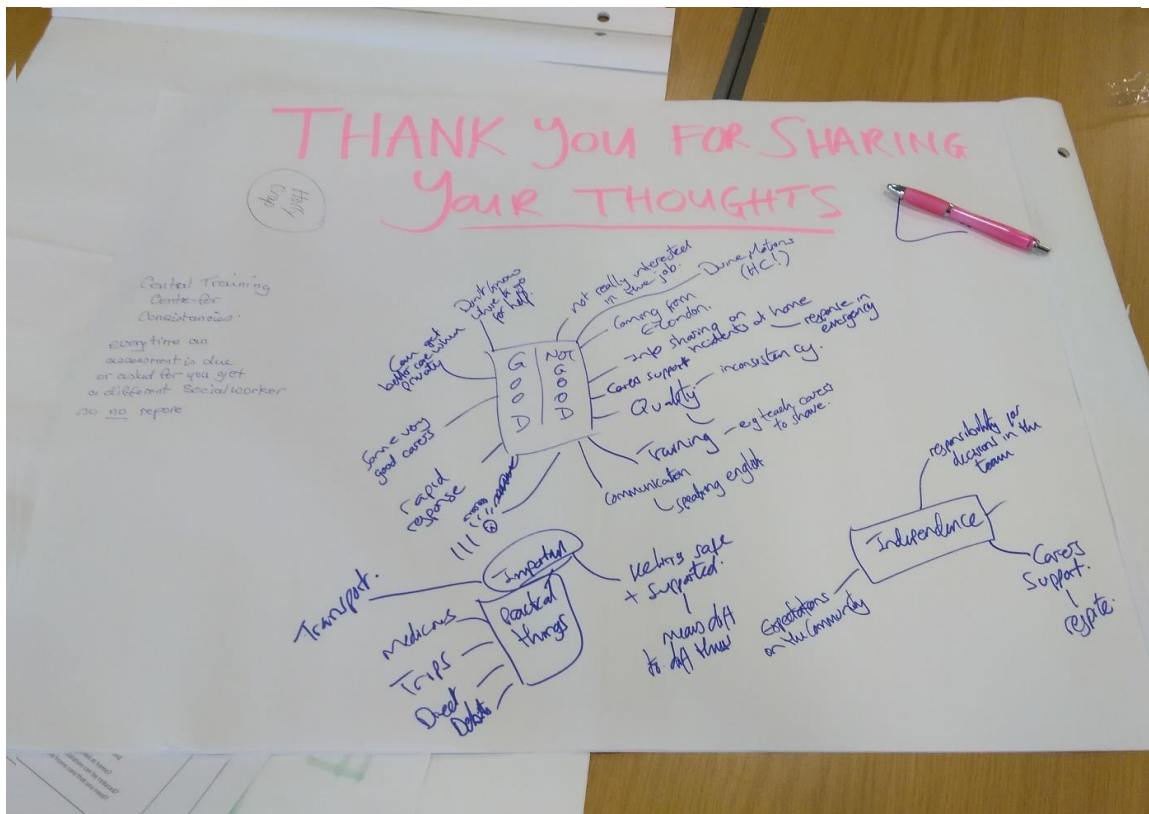 THANK YOU FOR SHARING
YOUR THOUGHTS
Central Training
Centre for
Consistancies.
everytime an
assessment is due
or asked for you get
a different Social worker
so no repore
GOOD
NOT GOOD
Don't know
where to go
for help.
Can get
better care when
privately
Some very
good carers
rapid
response
not really interested
in the job.
(HC!)
Coming from
E-London.
Info sharing on
incidents at home
response in
emergency
Carers support
Quality
inconsistency.
Training
eg teach carers
to shave.
Communication
speaking english
Important
Transport.
Feeling safe
+ supported.
means diff
to diff
Practical
things
Medicines
Trips
Direct
Debits
Independence
responsibility for
decisions in the
team
Carers
Support.
respite.
Expectations
on the Community